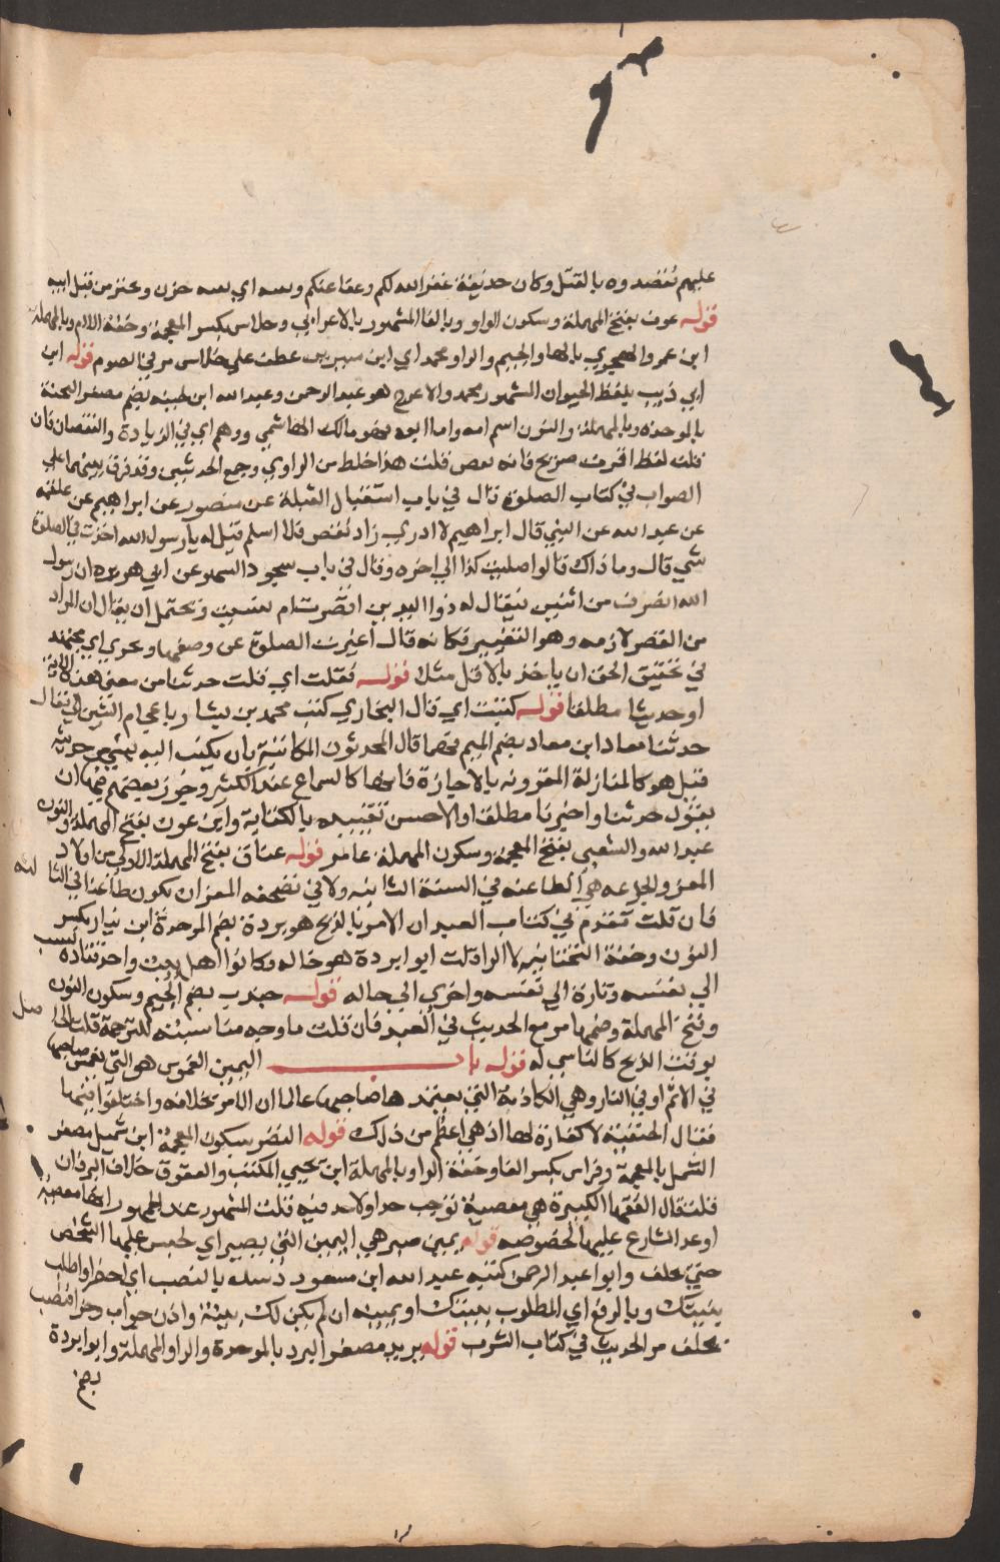 عليهم فقصدوه بالقتل وكان حذيفة غفر الله لكم وعفا عنكم وبعد اي بعد حزن وعنز من قبل ابيه
قوله عوف بفتح المهملة وسكون الواو وبالفا المشهور بالاعرابي وخلاس بكسر المعجمة وخفة اللام وبالمهملة
ابن عمرو الهجري بالها والجيم والراو محمد اي ابن سيرين عطف علي خلاس مر في الصوم قوله ابن
ابي ذيب بلفظ الحيوان المشهور محمد والاعرج هو عبد الرحمن وعبد الله ابن بحينه بضم مصغر البحنة
بالموحدة وبالمهملة والنون اسم امه واما ابوه فهو مالك الهاشمي ووهم اي في الزيادة والنقصان فان
قلت لفظ اقصرت صريح فانه نقص قلت هذا خلط من الراوي وجمع الحديثين وقد فرق بينهما علي
الصواب في كتاب الصلوة قال في باب استقبال القبلة عن منصور عن ابراهيم عن علقمة
عن عبد الله عن النبي قال ابراهيم لا ادري زاد نقص فلما سلم قيل له يا رسول الله احدث في الصلوة
شي قال وما ذاك قالوا صليت كذا الي اخره وقال في باب سجود السهو عن ابي هريرة ان رسول
الله انصرف من اثنين فقال له ذوا اليدين اقصرت ام نسيت ويحتمل ان يقال ان المراد
من القصر لازمه وهو التغيير فكانه قال اغيرت الصلوة عن وصفها ويحري اي يجتهد
في تحقيق الحق ان ياخذ بالاقل مثلا قوله فقلت اي قلت حدثنا من معني هذه الاية
او حديثا مطلقا قوله كتبت اي قال البخاري كتب محمد بن بشار باعجام الشين الي فقال
حدثنا معاد ابن معاد بضم الميم فيهما قال المحدثون المكاتبة بان يكتب اليه بشي من حديثه
قيل هو كالمناولة المقرونه بالاجازة فانها كالسماع عند الكثير وجوز بعضهم فيها ان
يقول حدثنا واخبرنا مطلقا والاحسن تقييده بالكتابة وابن عون بفتح المهملة والنون
عبد الله والشعبي بفتح المعجمة وسكون المهملة عامر قوله عناق بفتح المهملة الاولي من اولاد
المعز والجذعه هي الطاعنه في السنة الثانيه ولا في تضحية المعز ان يكون طاعنا في الثالثه
فان قلت تقدم في كتاب العيد ان الامر بالذبح هو بردة بضم الموحدة ابن نيار بكسر
النون وخفة التحتانية لا البرا قلت ابو ابردة هو خاله وكانوا اهل بيت واحد فتارة نسب
الي نفسه وتارة الي نفسه واخري الي خاله قوله جندب بضم الجيم وسكون النون
وفتح المهملة وضمها مر مع الحديث في العيد فان قلت ما وجه مناسبته للترجمة قلت
بوقت الذبح كالناسي له قوله باب اليمين الغموس هو التي تغمس صاحبها
في الاثم او في النار وهي الكاذبة التي يعتمدها صاحبها عالما ان الامر بخلافه واختلفوا فيها
فقال الحنفية لا كفارة لها اذ هي اعظم من ذلك قوله النضر بسكون المعجمة ابن شميل مصغر
الشمل بالمعجمة وفراس بكسر الفا وخفة الراو بالمهملة ابن يحيي المكتب والعقوق خلاف البر فان
قلت قال الفقها الكبيرة هي معصية توجب حدا ولا حد فيه قلت المشهور عند الجمهور انها معصية
اوعد الشارع عليها بخصوصه قوله يمين صبر هي اليمين التي يصير اي يحبس عليها الشخص
حتي يحلف وابو عبد الرحمن كنيه عبد الله ابن مسعود بينتك بالنصب اي احضر او اطلب
بينتك وبالرفع اي المطلوب بينتك او يمينه ان لم يكن لك بينة واذن جواب وجزا فنصب
يحلف مر الحديث في كتاب الشرب قوله بريد مصغر البرد بالموحدة والرا والمهملة وابو ابردة
بضم